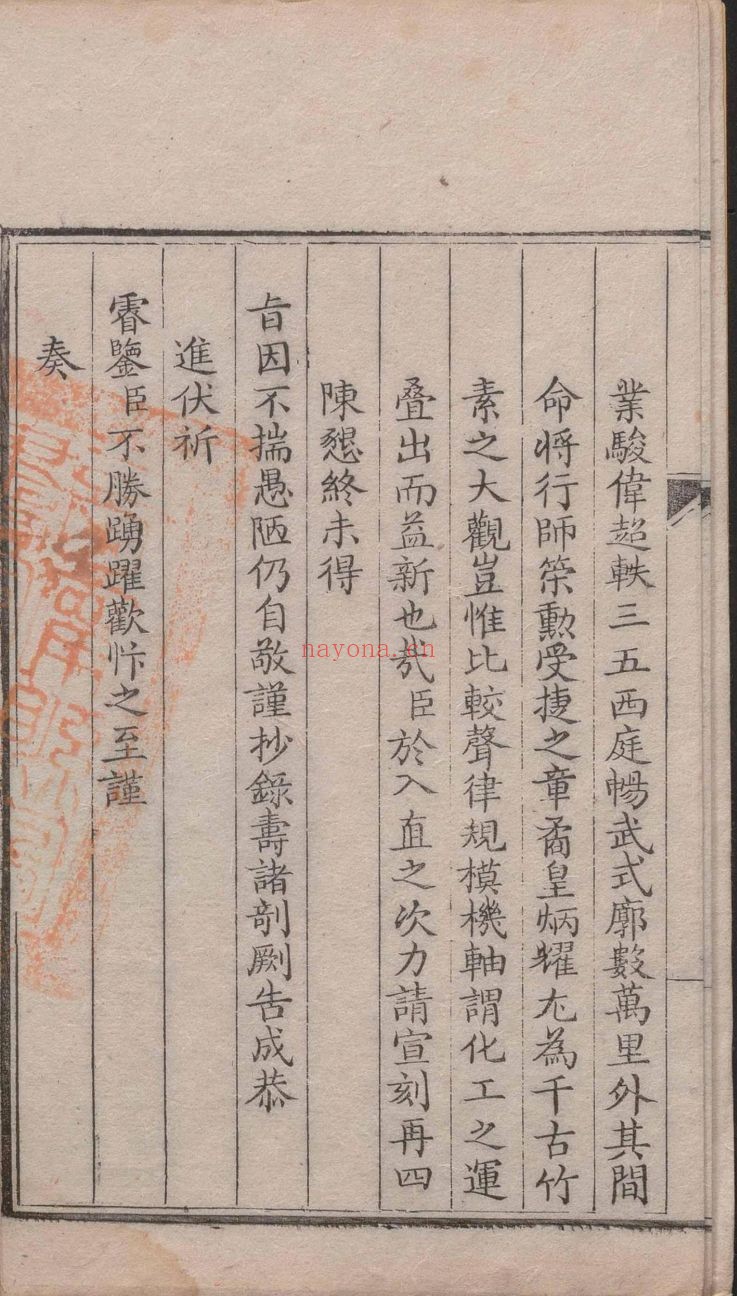 業駿偉超軼三五西庭暢武式廓數萬里外其間
命将行師策勳受捷之章矞皇炳耀尤為千古竹
素之大觀豈惟比較聲律規模機軸謂化工之運
叠出而益新也㢤臣於入直之次力請宣刻再四
陳懇終未得
旨因不揣愚陋仍自敬謹抄錄壽諸剞劂告成恭
進伏祈
睿鑒臣不勝踴躍歡忭之至謹
奏
nayona.cn